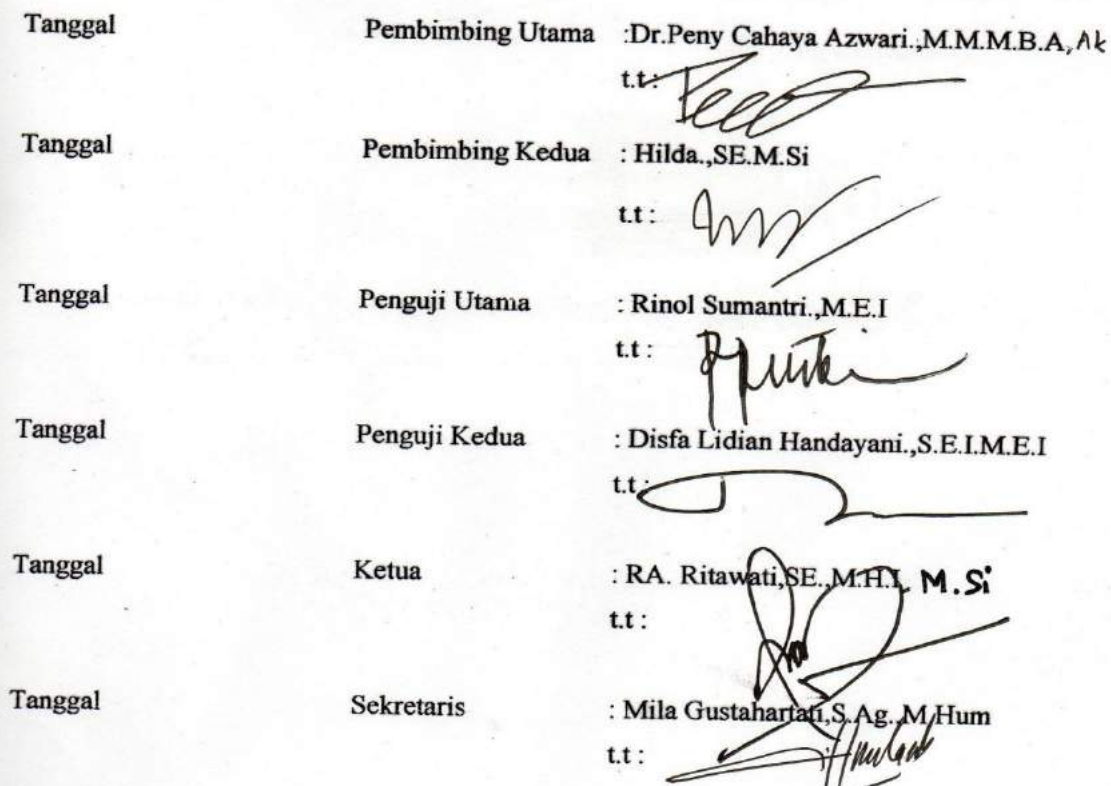 Tanggal Pembimbing Utama :Dr.Peny Cahaya Azwari.,M.M.M.B.A, Ak
t.t:
Tanggal Pembimbing Kedua : Hilda.,SE.M.Si
t.t :
Tanggal Penguji Utama : Rinol Sumantri.,M.E.I
t.t :
Tanggal Penguji Kedua : Disfa Lidian Handayani.,S.E.I.M.E.I
t.t :
Tanggal Ketua : RA. Ritawati,SE.,M.H.I, M.Si
t.t :
Tanggal Sekretaris : Mila Gustahartati,S.Ag.,M.Hum
t.t :